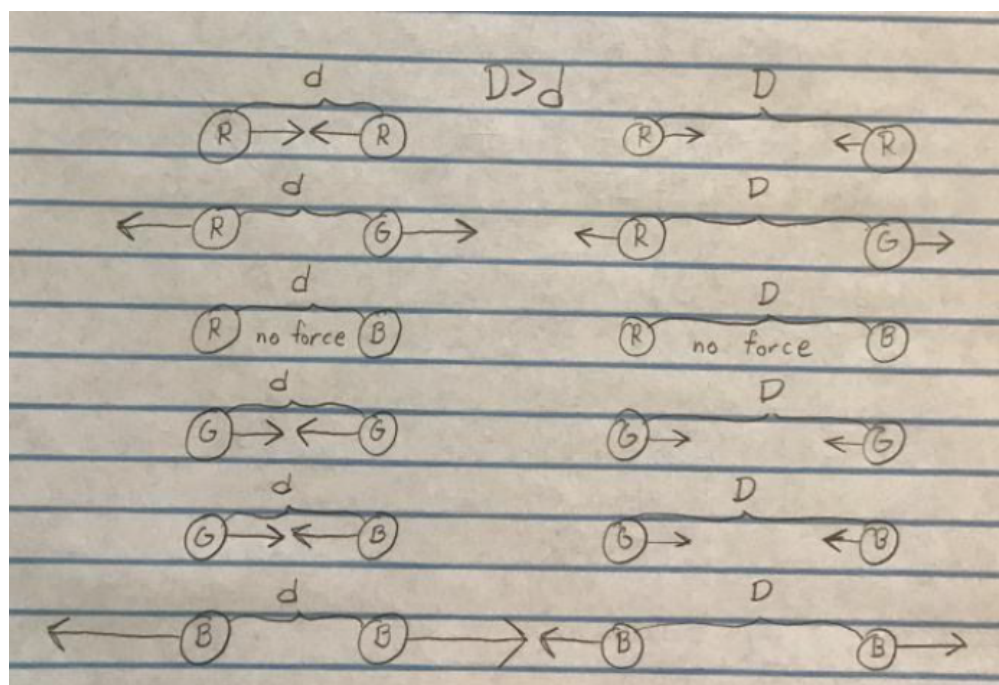 d D>d D
R R R R
d D
R G R G
d D
R no force B R no force B
d D
G G G G
d D
G B G B
d D
B B B B